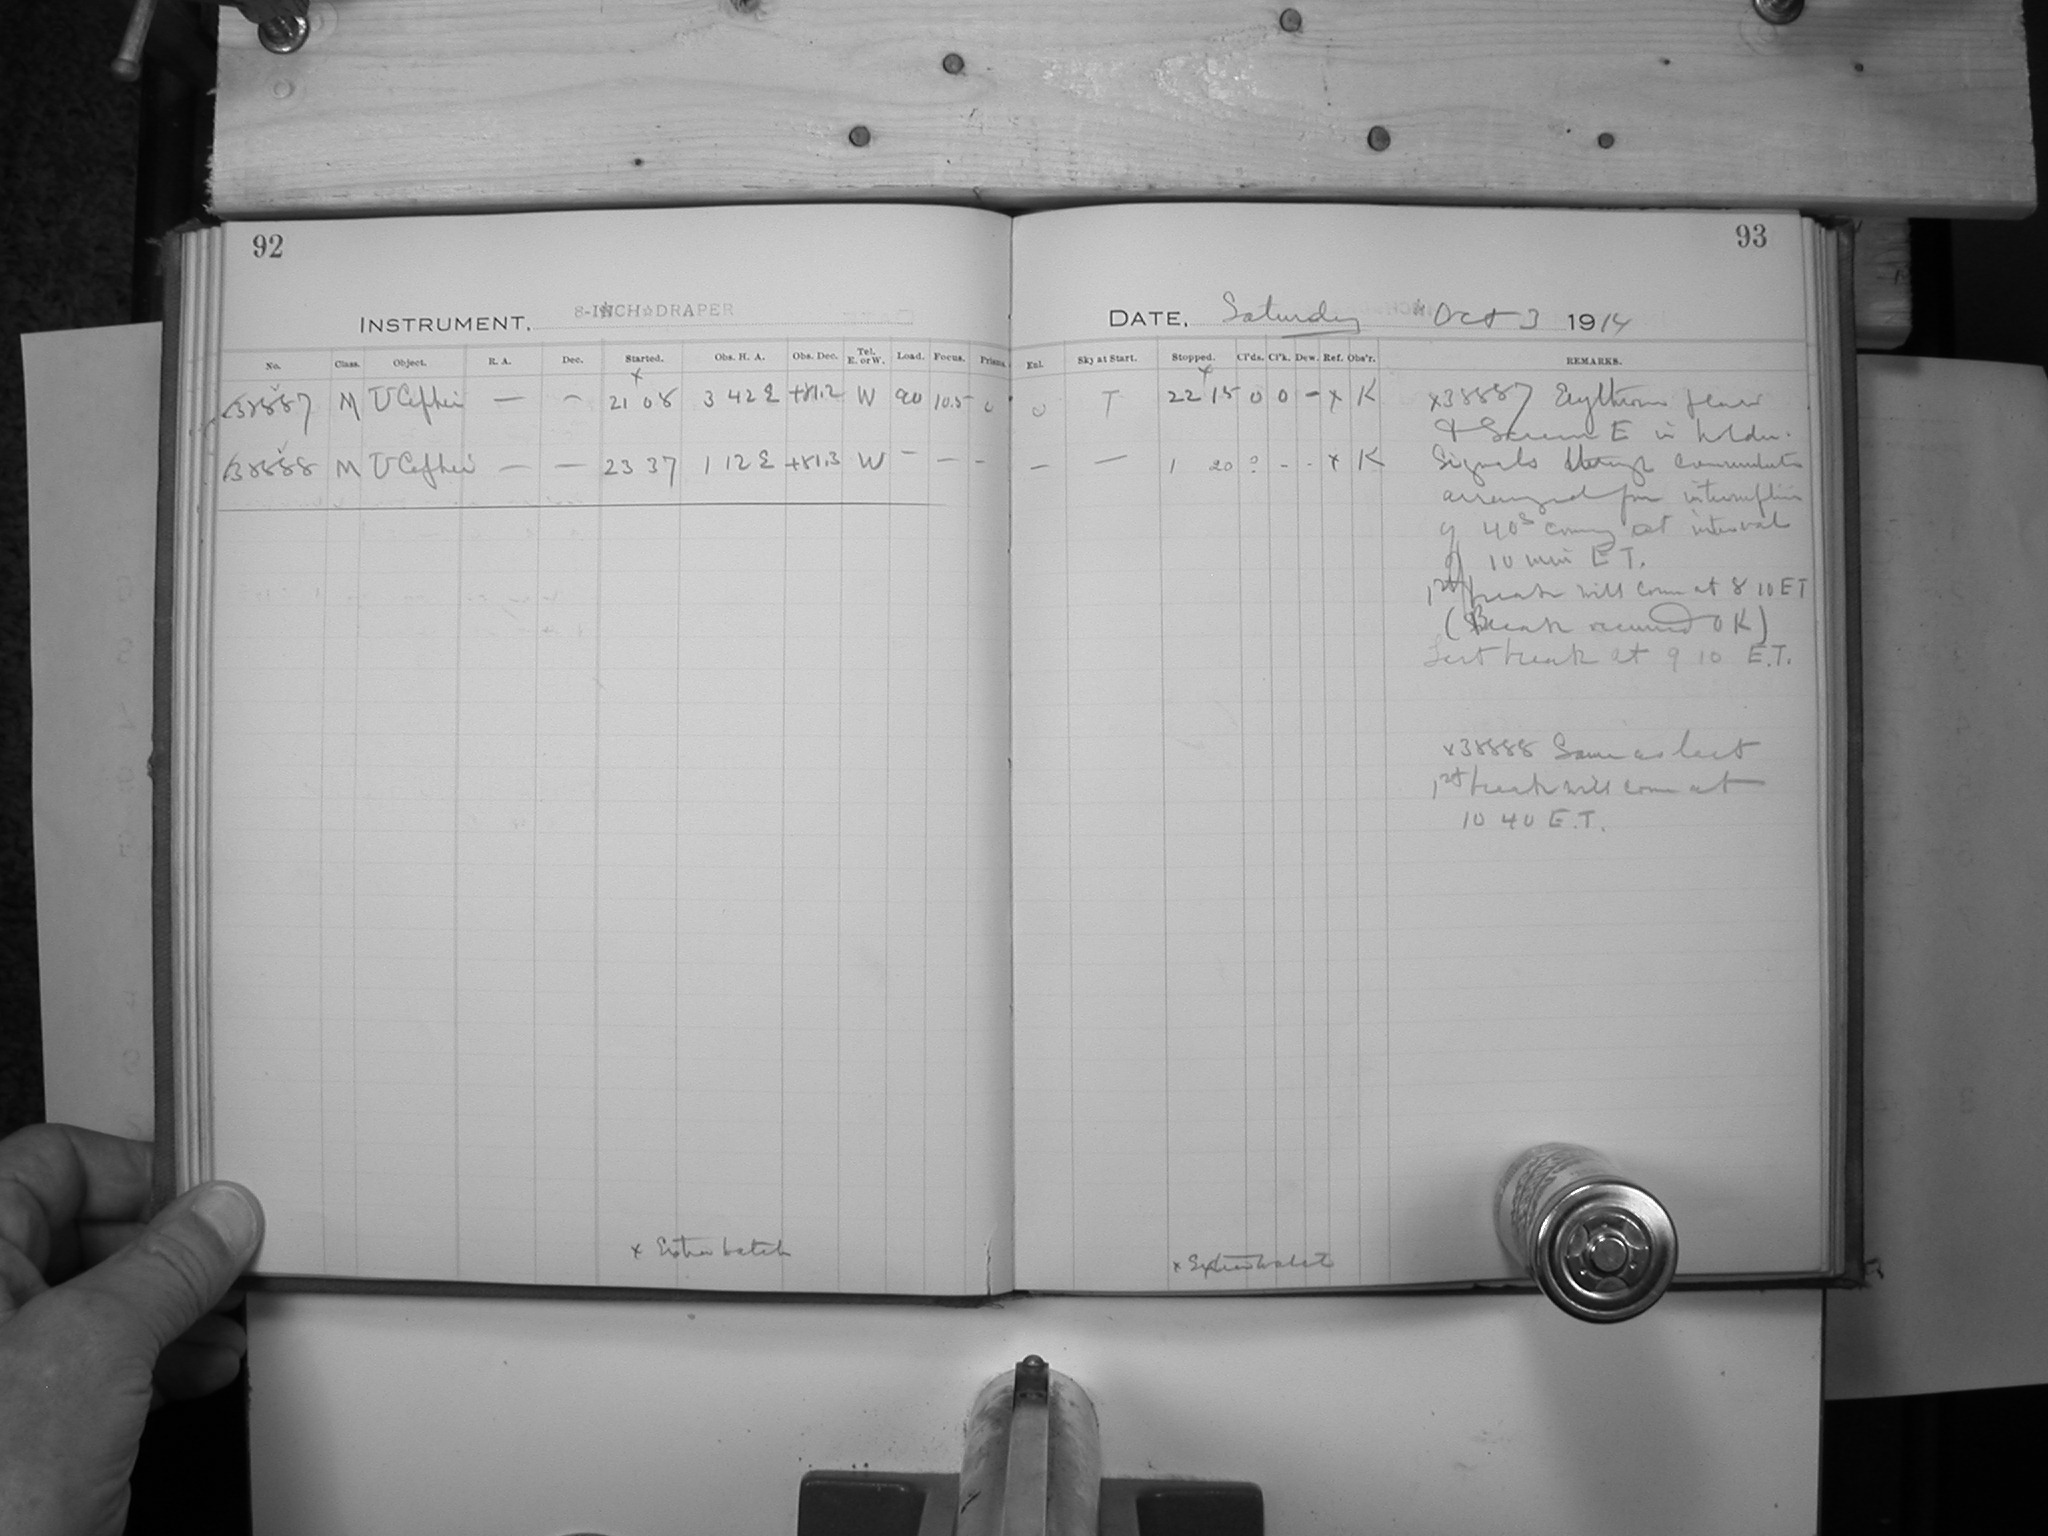 92
INSTRUMENT. 8-INCH DRAPER
No. Class. Object. R. A. Dec. Started. Obs. H. A. Obs. Dec. Tel. E. or W. Load. Focus. Prisms.
x
38887 M U Cephei — — 21 08 3 42 E +81.2 W 90 10.5 0
38888 M U Cephei — — 23 37 1 12 E +81.3 W — — -
x Extra watch
93
DATE, Saturday Oct 3 1914
Enl. Sky at Start. Stopped. Cl'ds. Cl'k. Dew. Ref. Obs'r. REMARKS.
x
0 T 22 15 0 0 - x K
— — 1 20 ? - - x K
x38887 Erythro
& Screen E in holder.
Signals through
arranged for interruption
of 40s coming at interval
of 10 min E T.
1st break will come at 8 10 ET
(Break received OK)
Last break at 9 10 E.T.
x38888 Same as last
1st break will come at
10 40 E.T.
x Extra watch